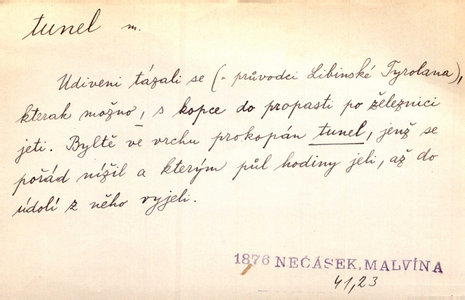 tunel m.
Udiveni tázali se (- průvodci Libinské Tyrolana),
kterak možno, s kopce do propasti po železnici
jeti. Byltě ve vrchu prokopán tunel, jenž se
pořád nížil a kterým půl hodiny jeli, až do
údolí z něho vyjeli.
1876 NEČÁSEK, MALVÍNA
41,23